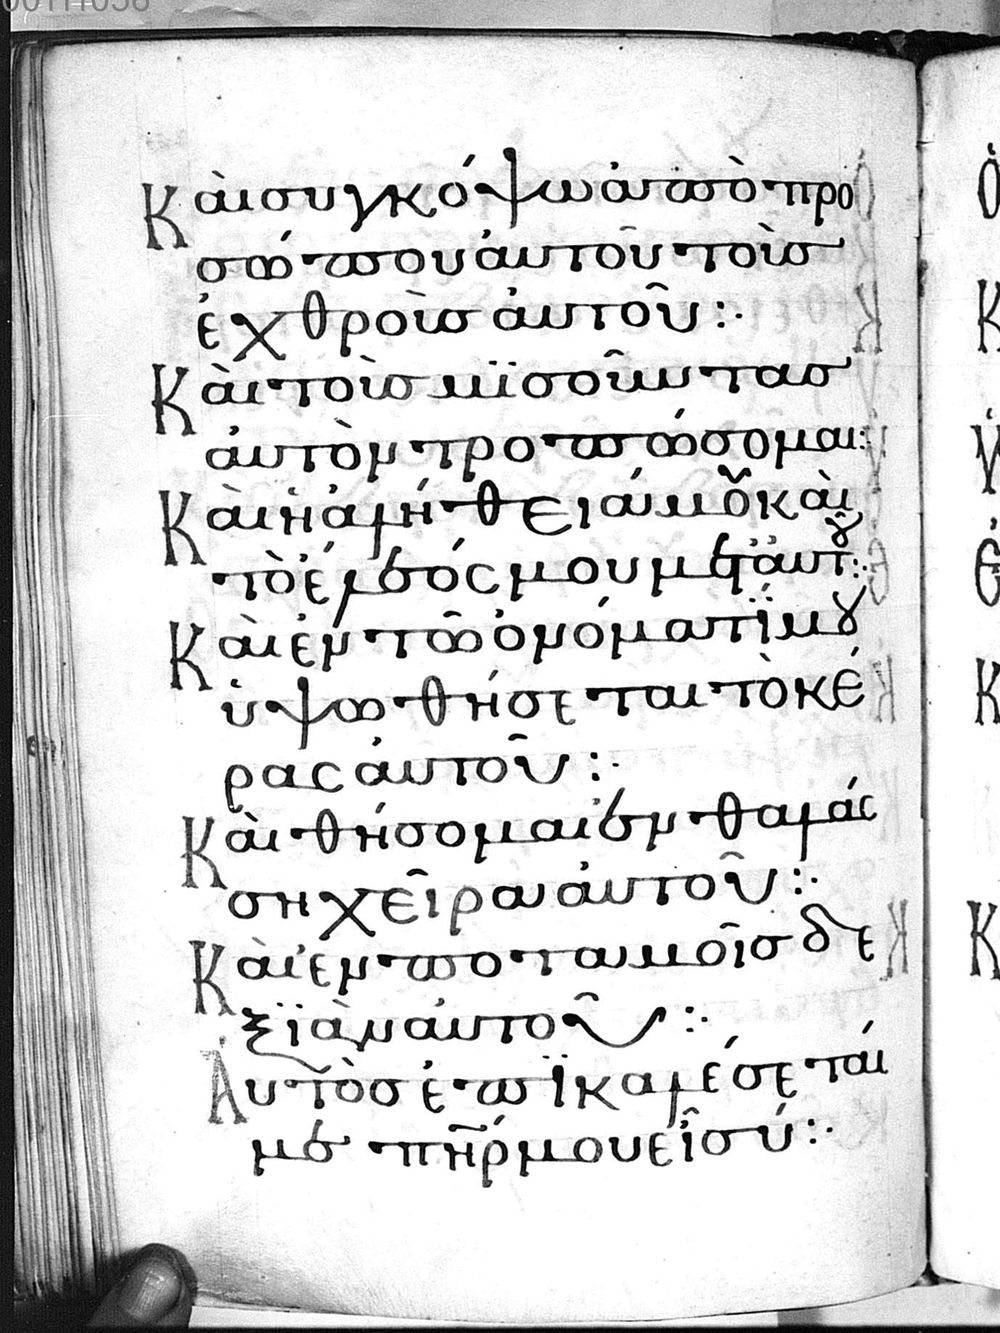 Καὶ συγκόψω ἀπὸ προ
σώπου ἀυτοῦ τοὺσ
ἐχθροὺσ ἀυτοῦ :·
Καὶ τοὺσ μϊσοῦντασ
ἀυτὸν τροπώσομαι:
Καὶ ἡ ἀλήθειά μου καὶ
τὸ ἔλεός μου μετ ἀυτοῦ:
Καὶ ἐν τῶ ὀνόματϊ μου
ὑψωθήσεται τὸ κέ
ρας ἀυτοῦ :·
Καὶ θήσομαι ἐν θαλάσ
ση χεῖρα ἀυτοῦ :·
Καὶ ἐν ποταμοῖσ δε
ξϊὰν ἀυτοῦ :·
Ἀυτὸσ ἐπϊκαλέσεται
με πῆρ μου εἶ σύ :·